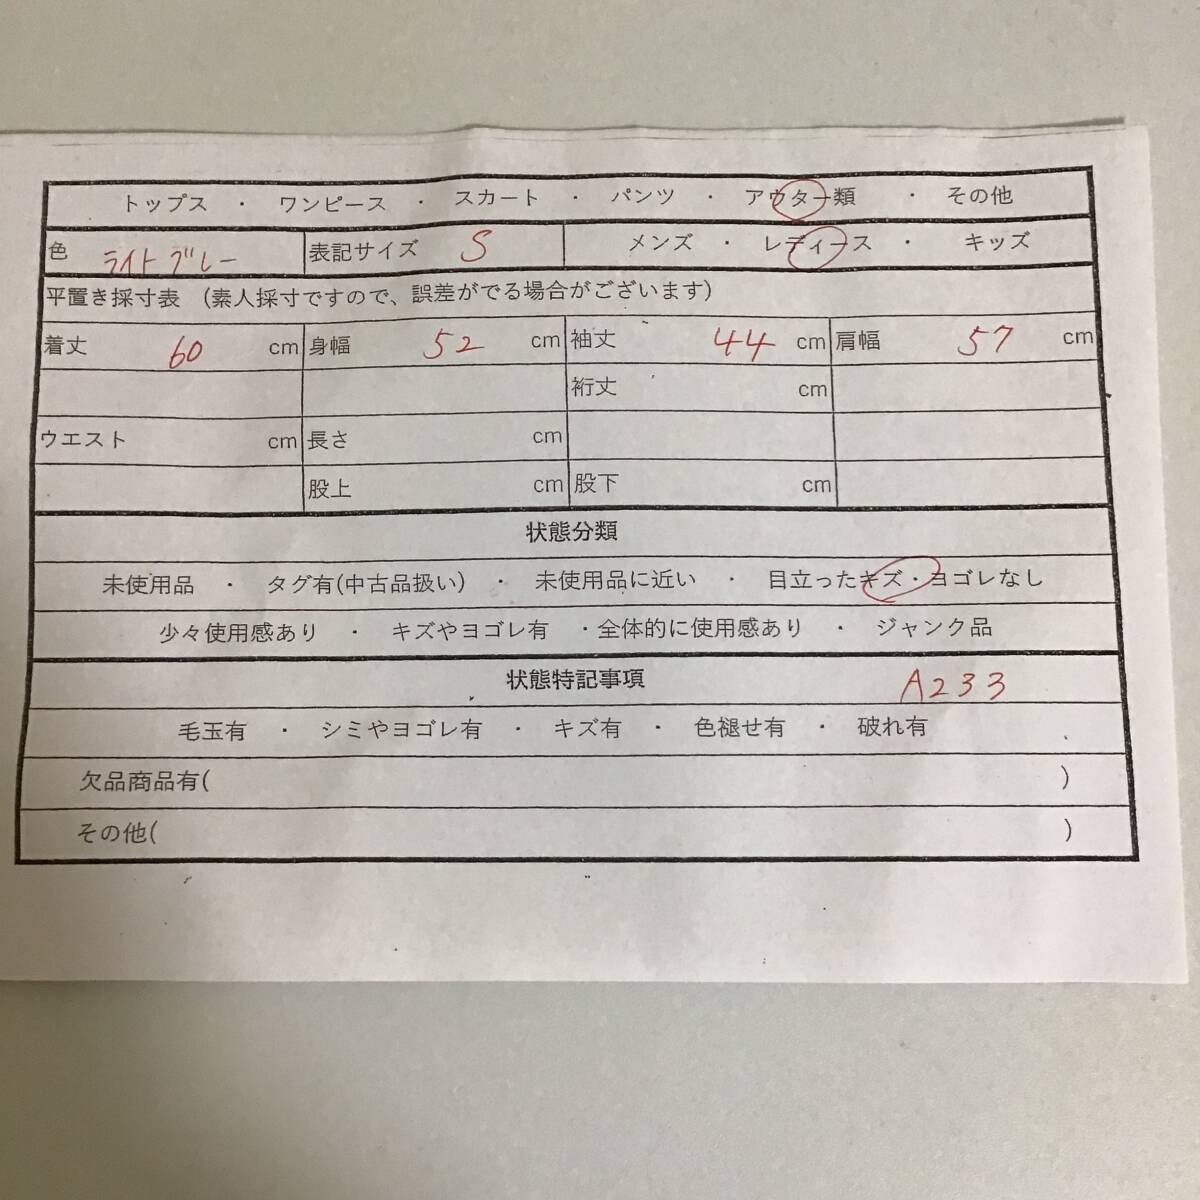 トップス ・ ワンピース ・ スカート ・ パンツ ・ アウター類 ・ その他
色 ライトグレー 表記サイズ S メンズ ・ レディース ・ キッズ
平置き採寸表 (素人採寸ですので、誤差がでる場合がございます)
着丈 60 cm 身幅 52 cm 袖丈 44 cm 肩幅 57 cm
裄丈 cm
ウエスト cm 長さ cm
股上 cm 股下 cm
状態分類
未使用品 ・ タグ有(中古品扱い) ・ 未使用品に近い ・ 目立ったキズ・ヨゴレなし
少々使用感あり ・ キズやヨゴレ有 ・全体的に使用感あり ・ ジャンク品
状態特記事項 A233
毛玉有 ・ シミやヨゴレ有 ・ キズ有 ・ 色褪せ有 ・ 破れ有
欠品商品有( )
その他( )